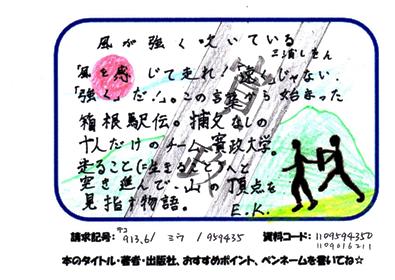 風が強く吹いている
三浦しをん
「風を感じて走れ!速くじゃない、
「強く」だ!」。この言葉から始まった
箱根駅伝。補欠なしの
十人だけのチーム寛政大学。
走ること(生きること)へと
突き進んで、山の頂点を
見指す物語。
E.K.
請求記号: テコ 913.6/ ミウ / 959435
資料コード: 1109594350
1109016211
本のタイトル・著者・出版社、おすすめポイント、ペンネームを書いてね☆